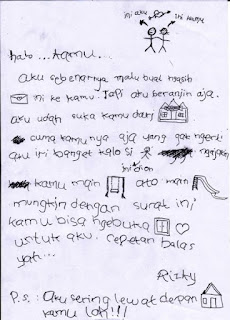 ini aku ini kamu
halo... kamu...
aku sebenarnya malu buat ngasih
ini ke kamu. Tapi aku beranjin aja.
aku udah suka kamu dari
cuma kamunya aja yang gak ngerti.
aku iri banget kalo si ngajakin
si onon
kamu main ato main
mungkin dengan surat ini
kamu bisa ngebuka
untuk aku. cepetan balas
yah...
Rizky
P.S. : Aku sering lewat depan
kamu loh!!!